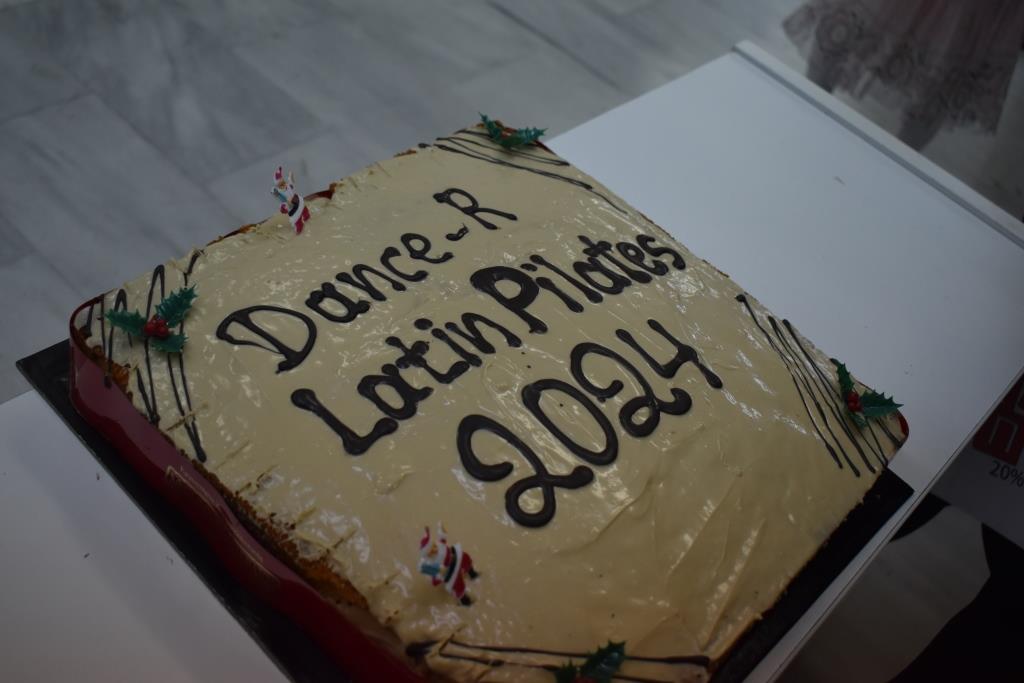 Dance_R
Latin Pilates
2024
20%